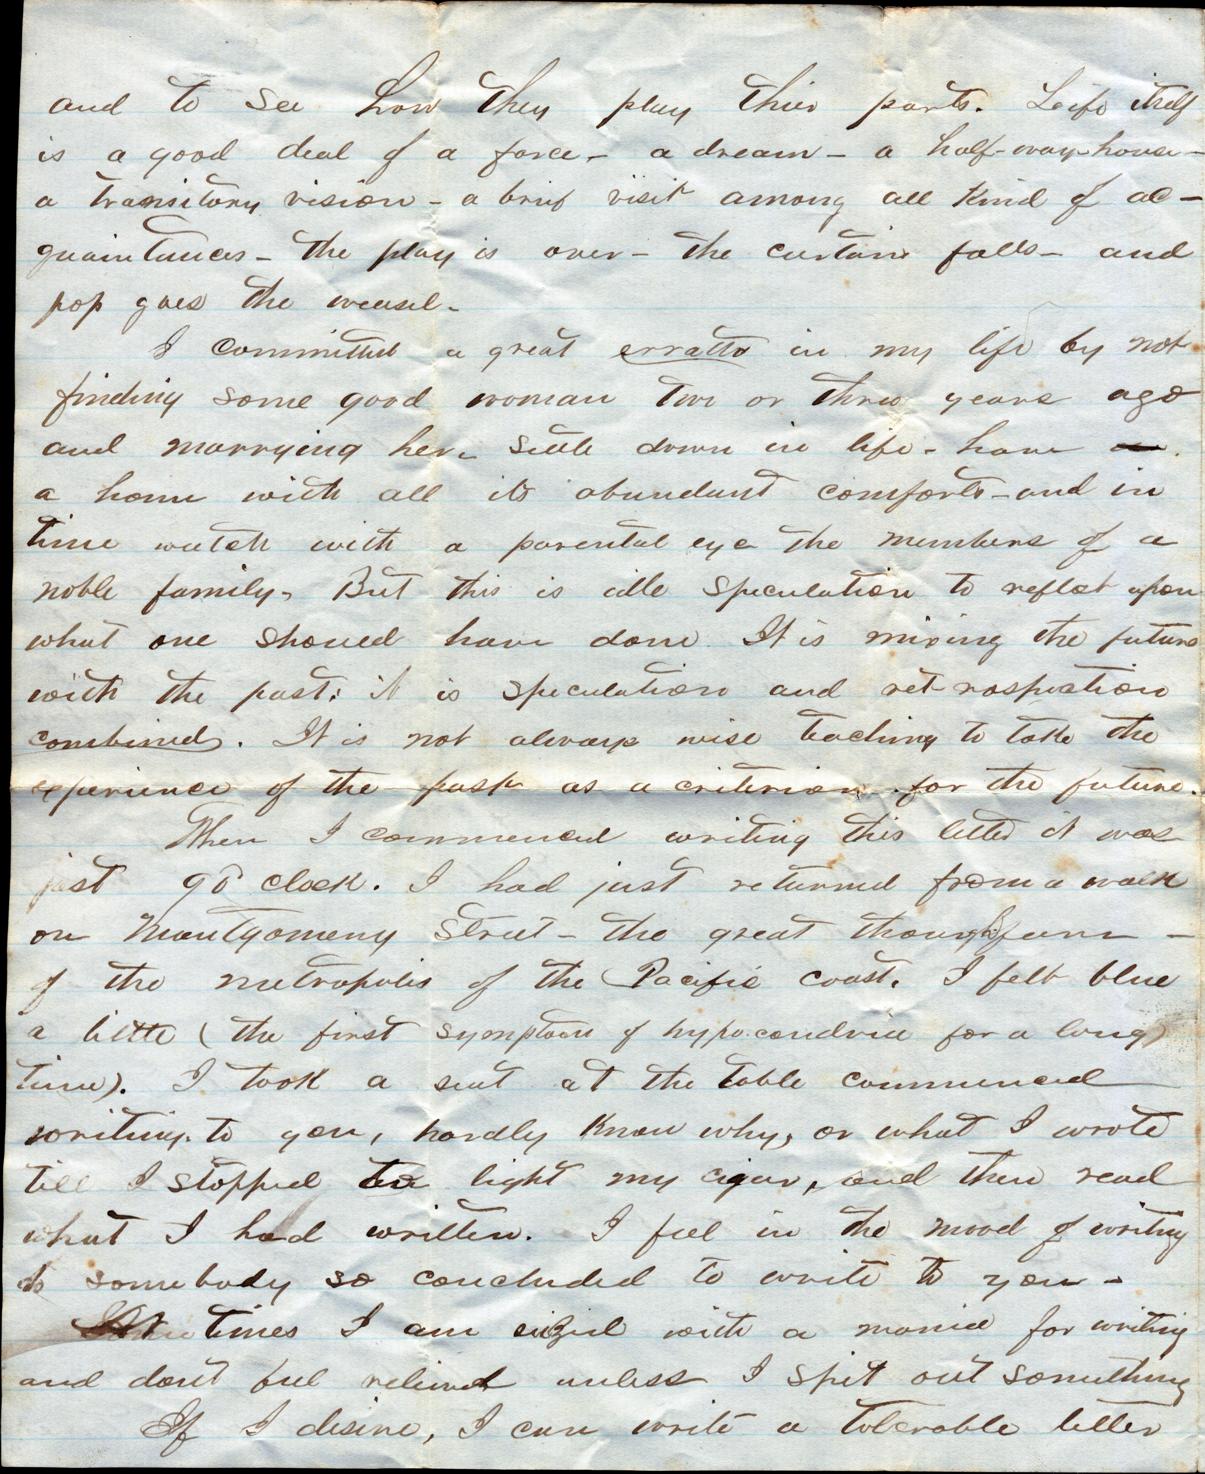 and to see how they play thier parts. Life itself
is a good deal of a farce - a dream - a half-way-house -
a transitory vision - a brief visit among all kind of ac -
quaintances - the play is over - the curtain falls - and
pop goes the weasel -
I committed a great erratta in my life by not
finding some good woman two or three years ago
and marrying her - settle down in life - have
a home with all its abundant comforts - and in
time watch with a parental eye the members of a
noble family. But this is idle speculation to reflect upon
what one should have done. It is mixing the future
with the past: it is speculation and ret-rospection
combined. It is not always wise teaching to take the
experience of the past as a criterion for the future.
When I commenced writing this letter it was
just 9 o'clock. I had just returned from a walk
on Montgomery Street - the great thoroughfare -
of the metropolis of the Pacific coast. I felt blue
a little (the first symptom of hypocondria for a long
time). I took a seat at the table commenced
writing to you, hardly know why, or what I wrote
till I stopped to light my cigar, and then read
what I had written. I feel in the mood of writing
to somebody so concluded to write to you -
times I am seized with a mania for writing
and don't feel relieved unless I spit out something
If I desire, I can write a tolerable letter